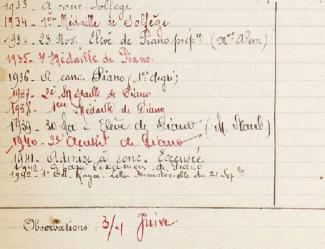 1933 - A conc. Solfège
1934 - 1ère Médaille de Solfège
1934 - 23 Nov. Elève de Piano prép.re (Mme Alem)
1935 - 3e Médaille de Piano.
1936 - A conc. Piano (1er degré)
1937 - 2e Médaille de Piano
1938 - 1ère Médaille de Piano
1939 - Elève de Piano (M. Staub)
1940 - 2d Accessit de Piano
1941 - Admise à conc. Excusée
1942 - A passé l'examen de Piano
1942 - Lettre Ministérielle du 21 Sept.
Observations : 3/4 Juive